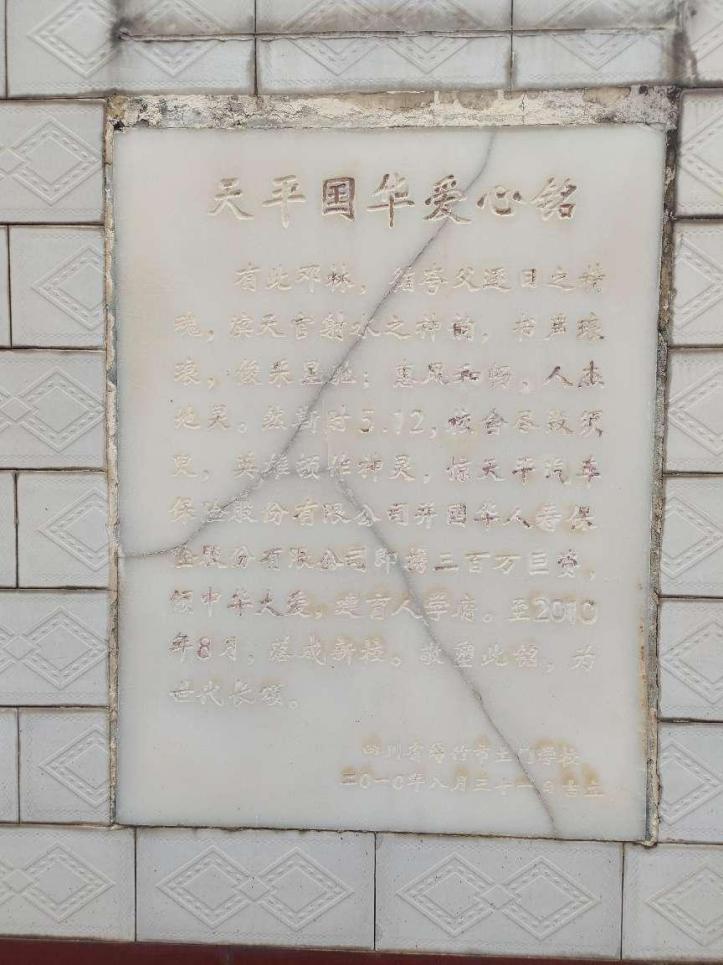 天平国华爱心铭
有此邓林，循夸父逐日之精
魂，滨天官射水之神韵，书声琅
琅，俊采星驰；惠风和畅，人杰
地灵。然断时5.12，校舍尽毁须
臾，英雄顿作神灵，惊天平汽车
保险股份有限公司并国华人寿保
险股份有限公司即捐三百万巨资，
倾中华大爱，建育人学府。至2010
年8月，落成新校。敬塑此铭，为
世代长颂。
四川省绵竹市土门学校
二〇一〇年八月三十一日吉立